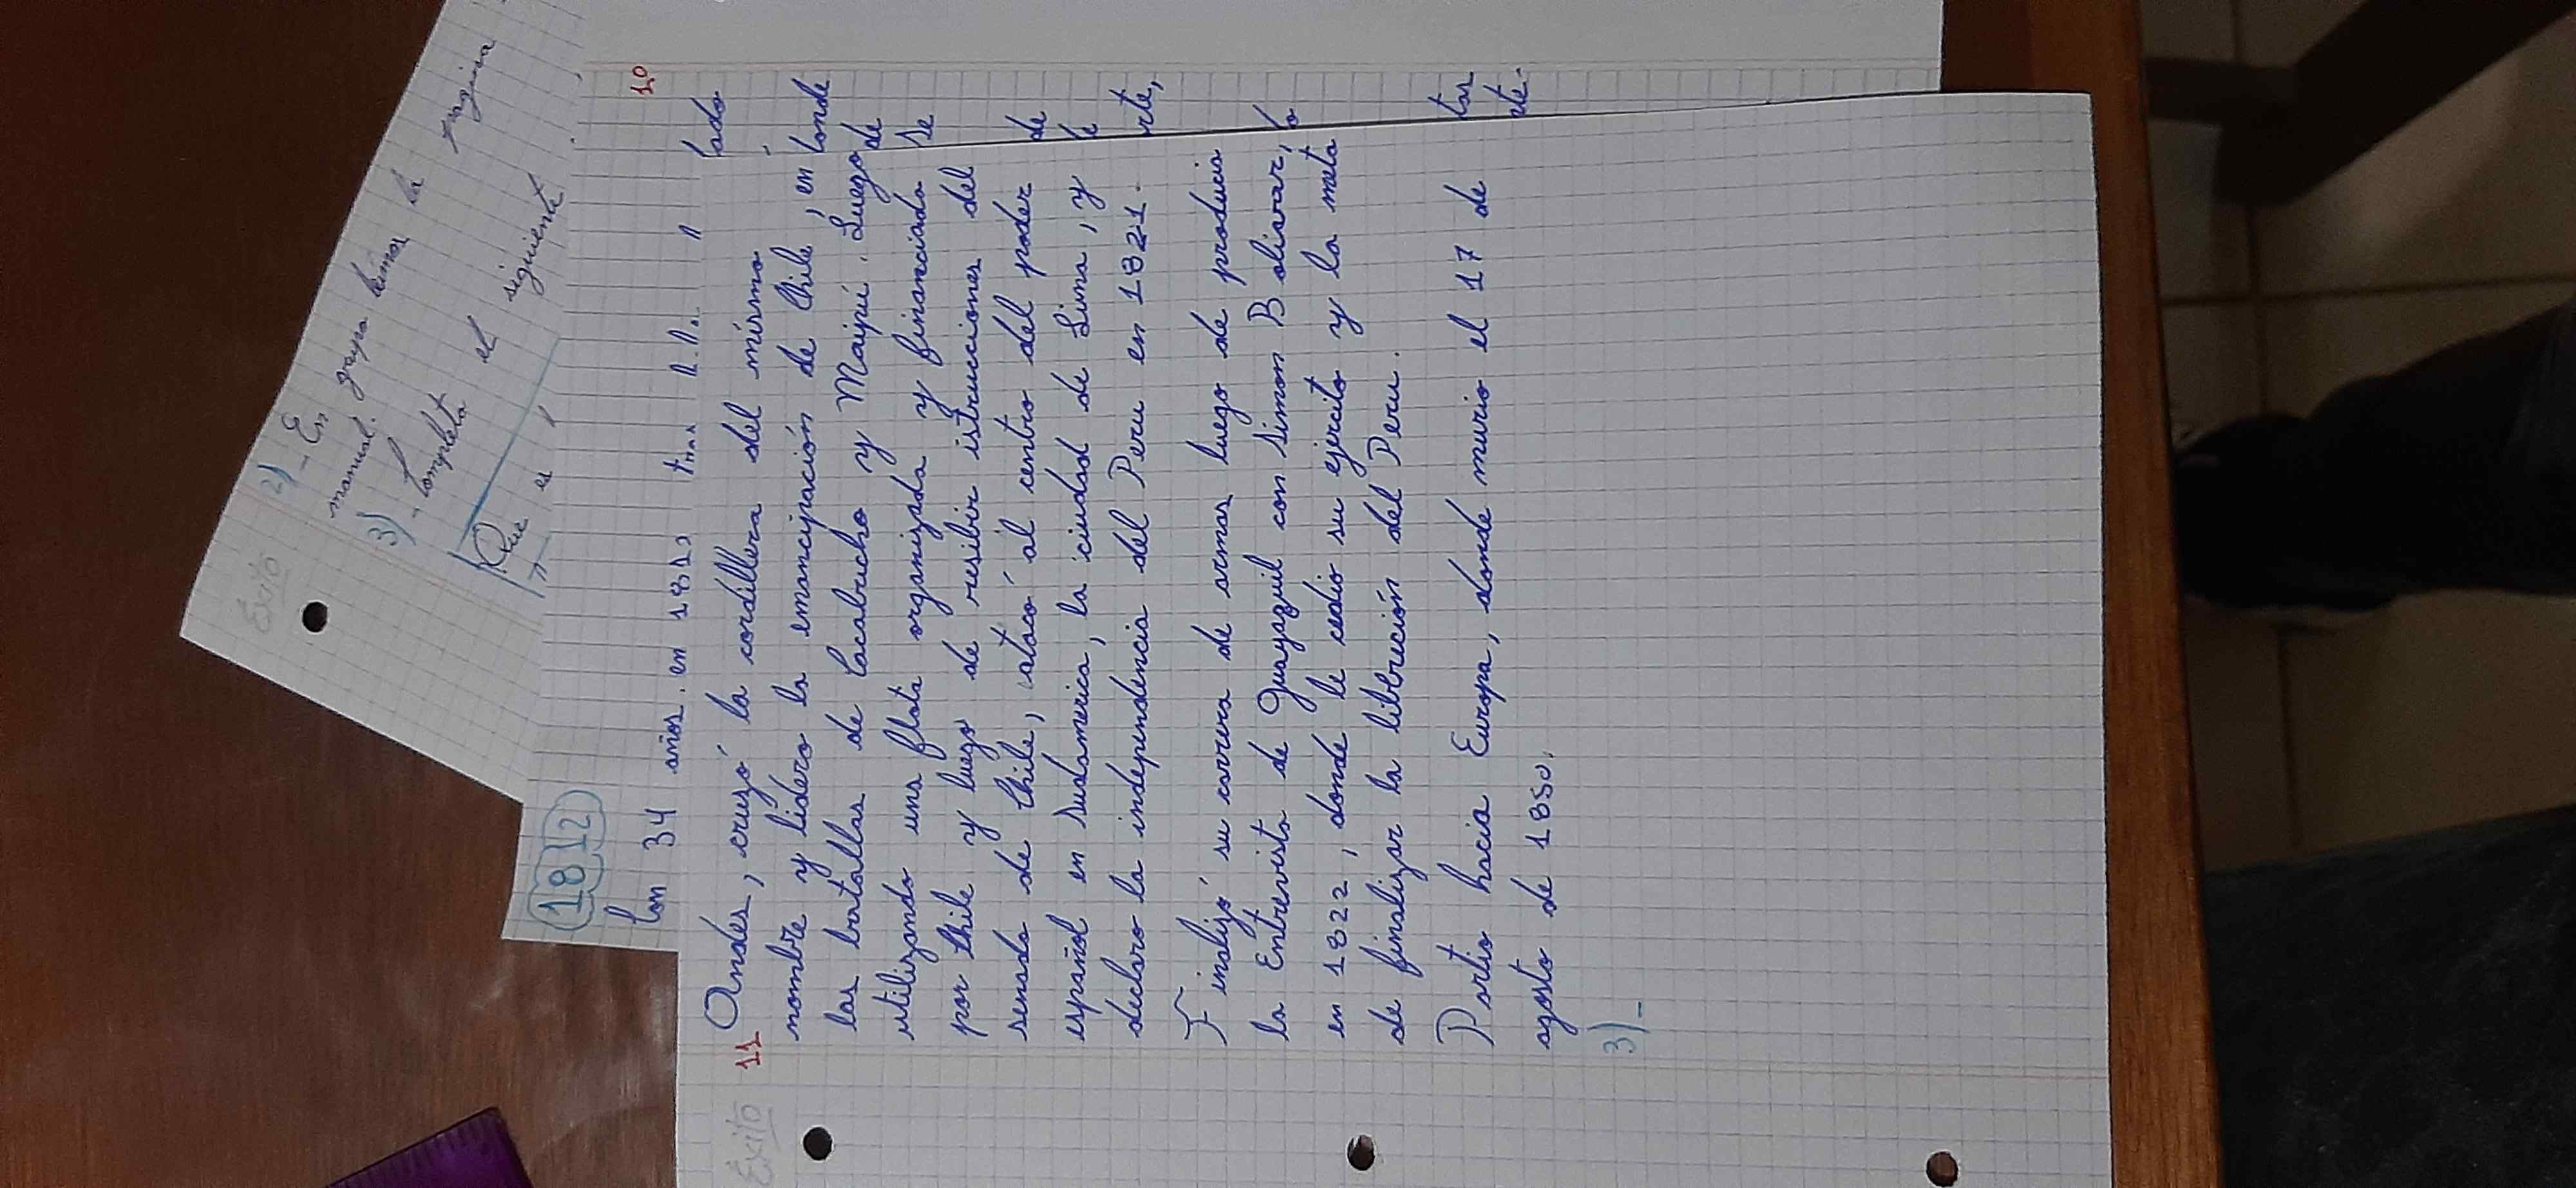 Exito
2)- En grupo leimos la pagina
manual.
3)
- Completa el siguiente
Que es
1812
10
Con 34 años. en 1812
lado
Exito
11
Andes, cruzó la cordillera del mismo
nombre y lidero la emancipación de Chile, en donde
las batallas de Cacabucho y Maipú. Luego de
utilizando una flota organizada y financiada se
por Chile y luego de resibir istrucciones del
senado de Chile, atacó al centro del poder de
español en Sudamerica, la ciudad de Lima, y le
declaro la independencia del Peru en 1821. rte,
Finalizó su carrera de armas luego de producia
la Entrevista de Guayaquil con Simon Bolivar, lo
en 1822, donde le cedio su ejercito y la meta
de finalizar la libración del Peru.
Partio hacia Europa, donde murio el 17 de tar
agosto de 1850. rte.
3)-